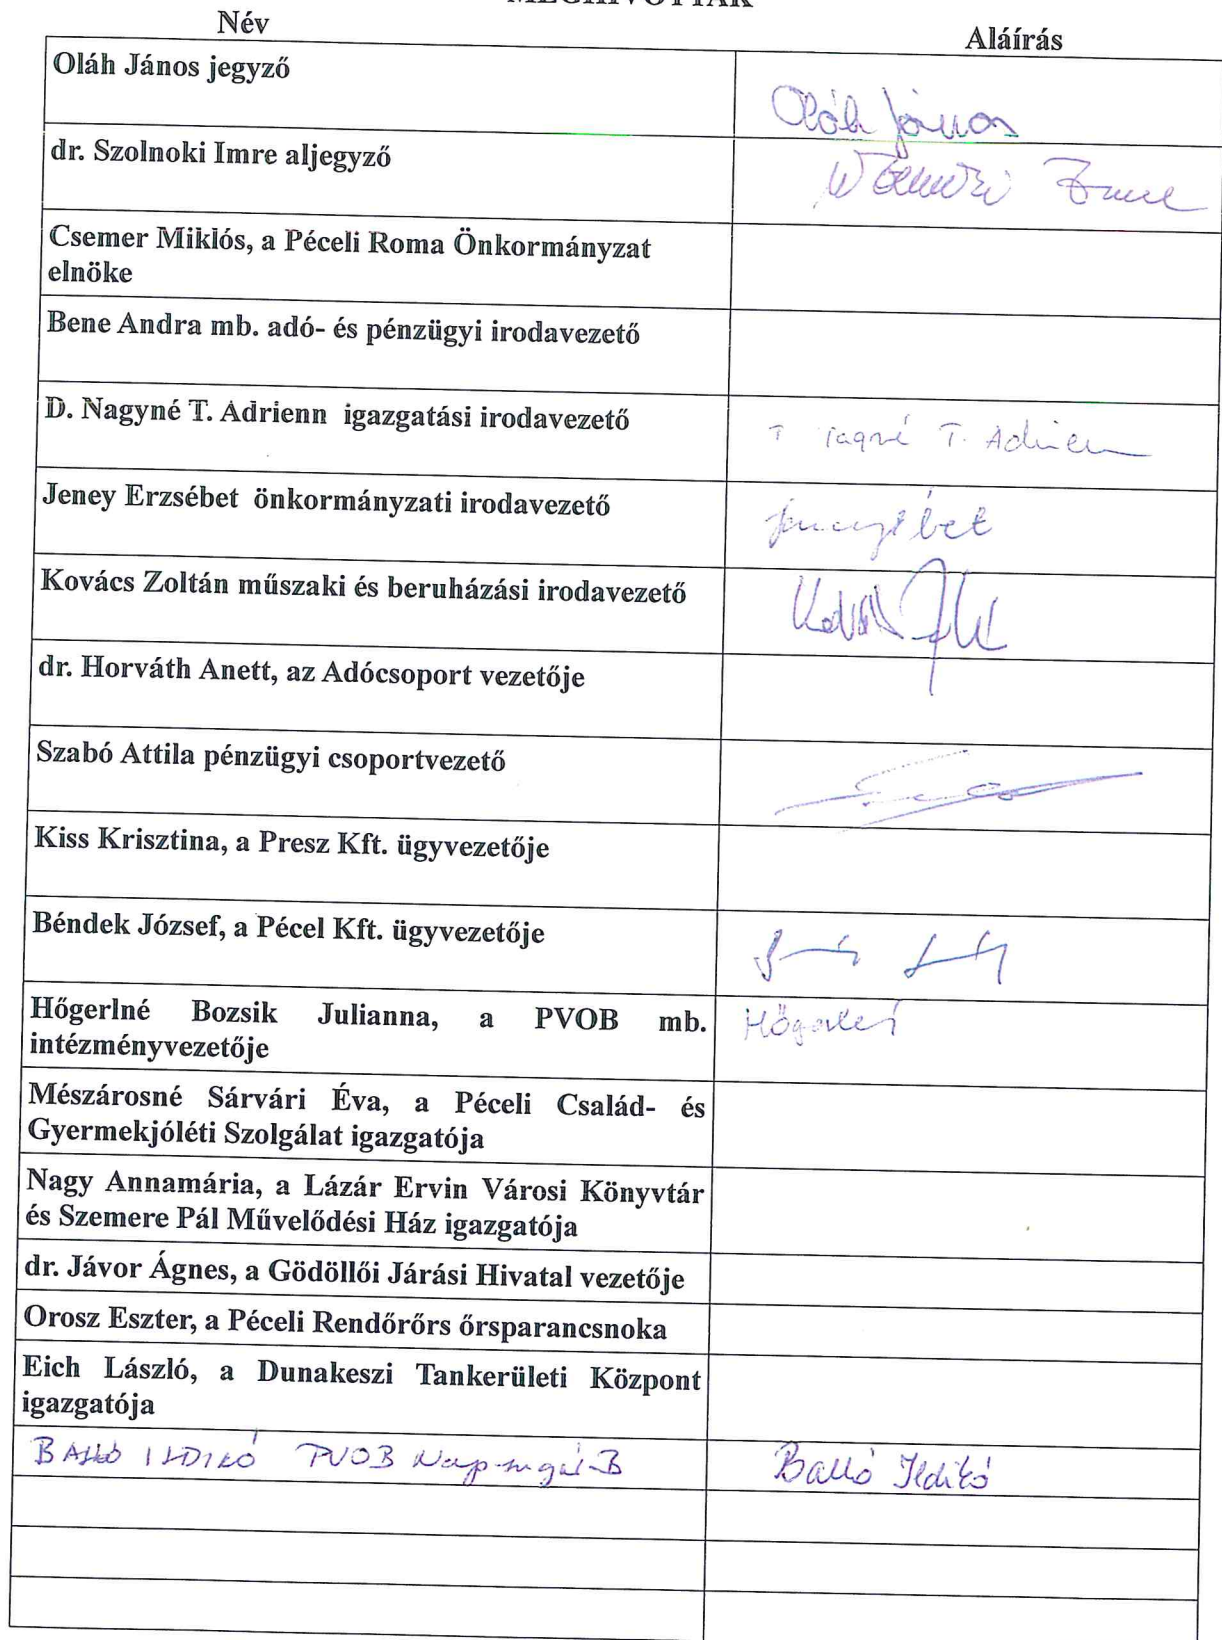 MEGHÍVOTTAK
Név Aláírás
Oláh János jegyző
Oláh János
dr. Szolnoki Imre aljegyző
Imre
Csemer Miklós, a Péceli Roma Önkormányzat
elnöke
Bene Andra mb. adó- és pénzügyi irodavezető
D. Nagyné T. Adrienn igazgatási irodavezető
T. Adrienn
Jeney Erzsébet önkormányzati irodavezető
Kovács Zoltán műszaki és beruházási irodavezető
dr. Horváth Anett, az Adócsoport vezetője
Szabó Attila pénzügyi csoportvezető
Kiss Krisztina, a Presz Kft. ügyvezetője
Béndek József, a Pécel Kft. ügyvezetője
Hőgerlné Bozsik Julianna, a PVOB mb.
intézményvezetője
Mészárosné Sárvári Éva, a Péceli Család- és
Gyermekjóléti Szolgálat igazgatója
Nagy Annamária, a Lázár Ervin Városi Könyvtár
és Szemere Pál Művelődési Ház igazgatója
dr. Jávor Ágnes, a Gödöllői Járási Hivatal vezetője
Orosz Eszter, a Péceli Rendőrőrs őrsparancsnoka
Eich László, a Dunakeszi Tankerületi Központ
igazgatója
BALLÓ ILDIKÓ PVOB
Balló Ildikó